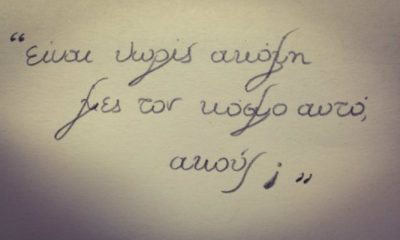 “είναι νωρίς ακόμη
μες τον κόσμο αυτό,
ακούς ; ”